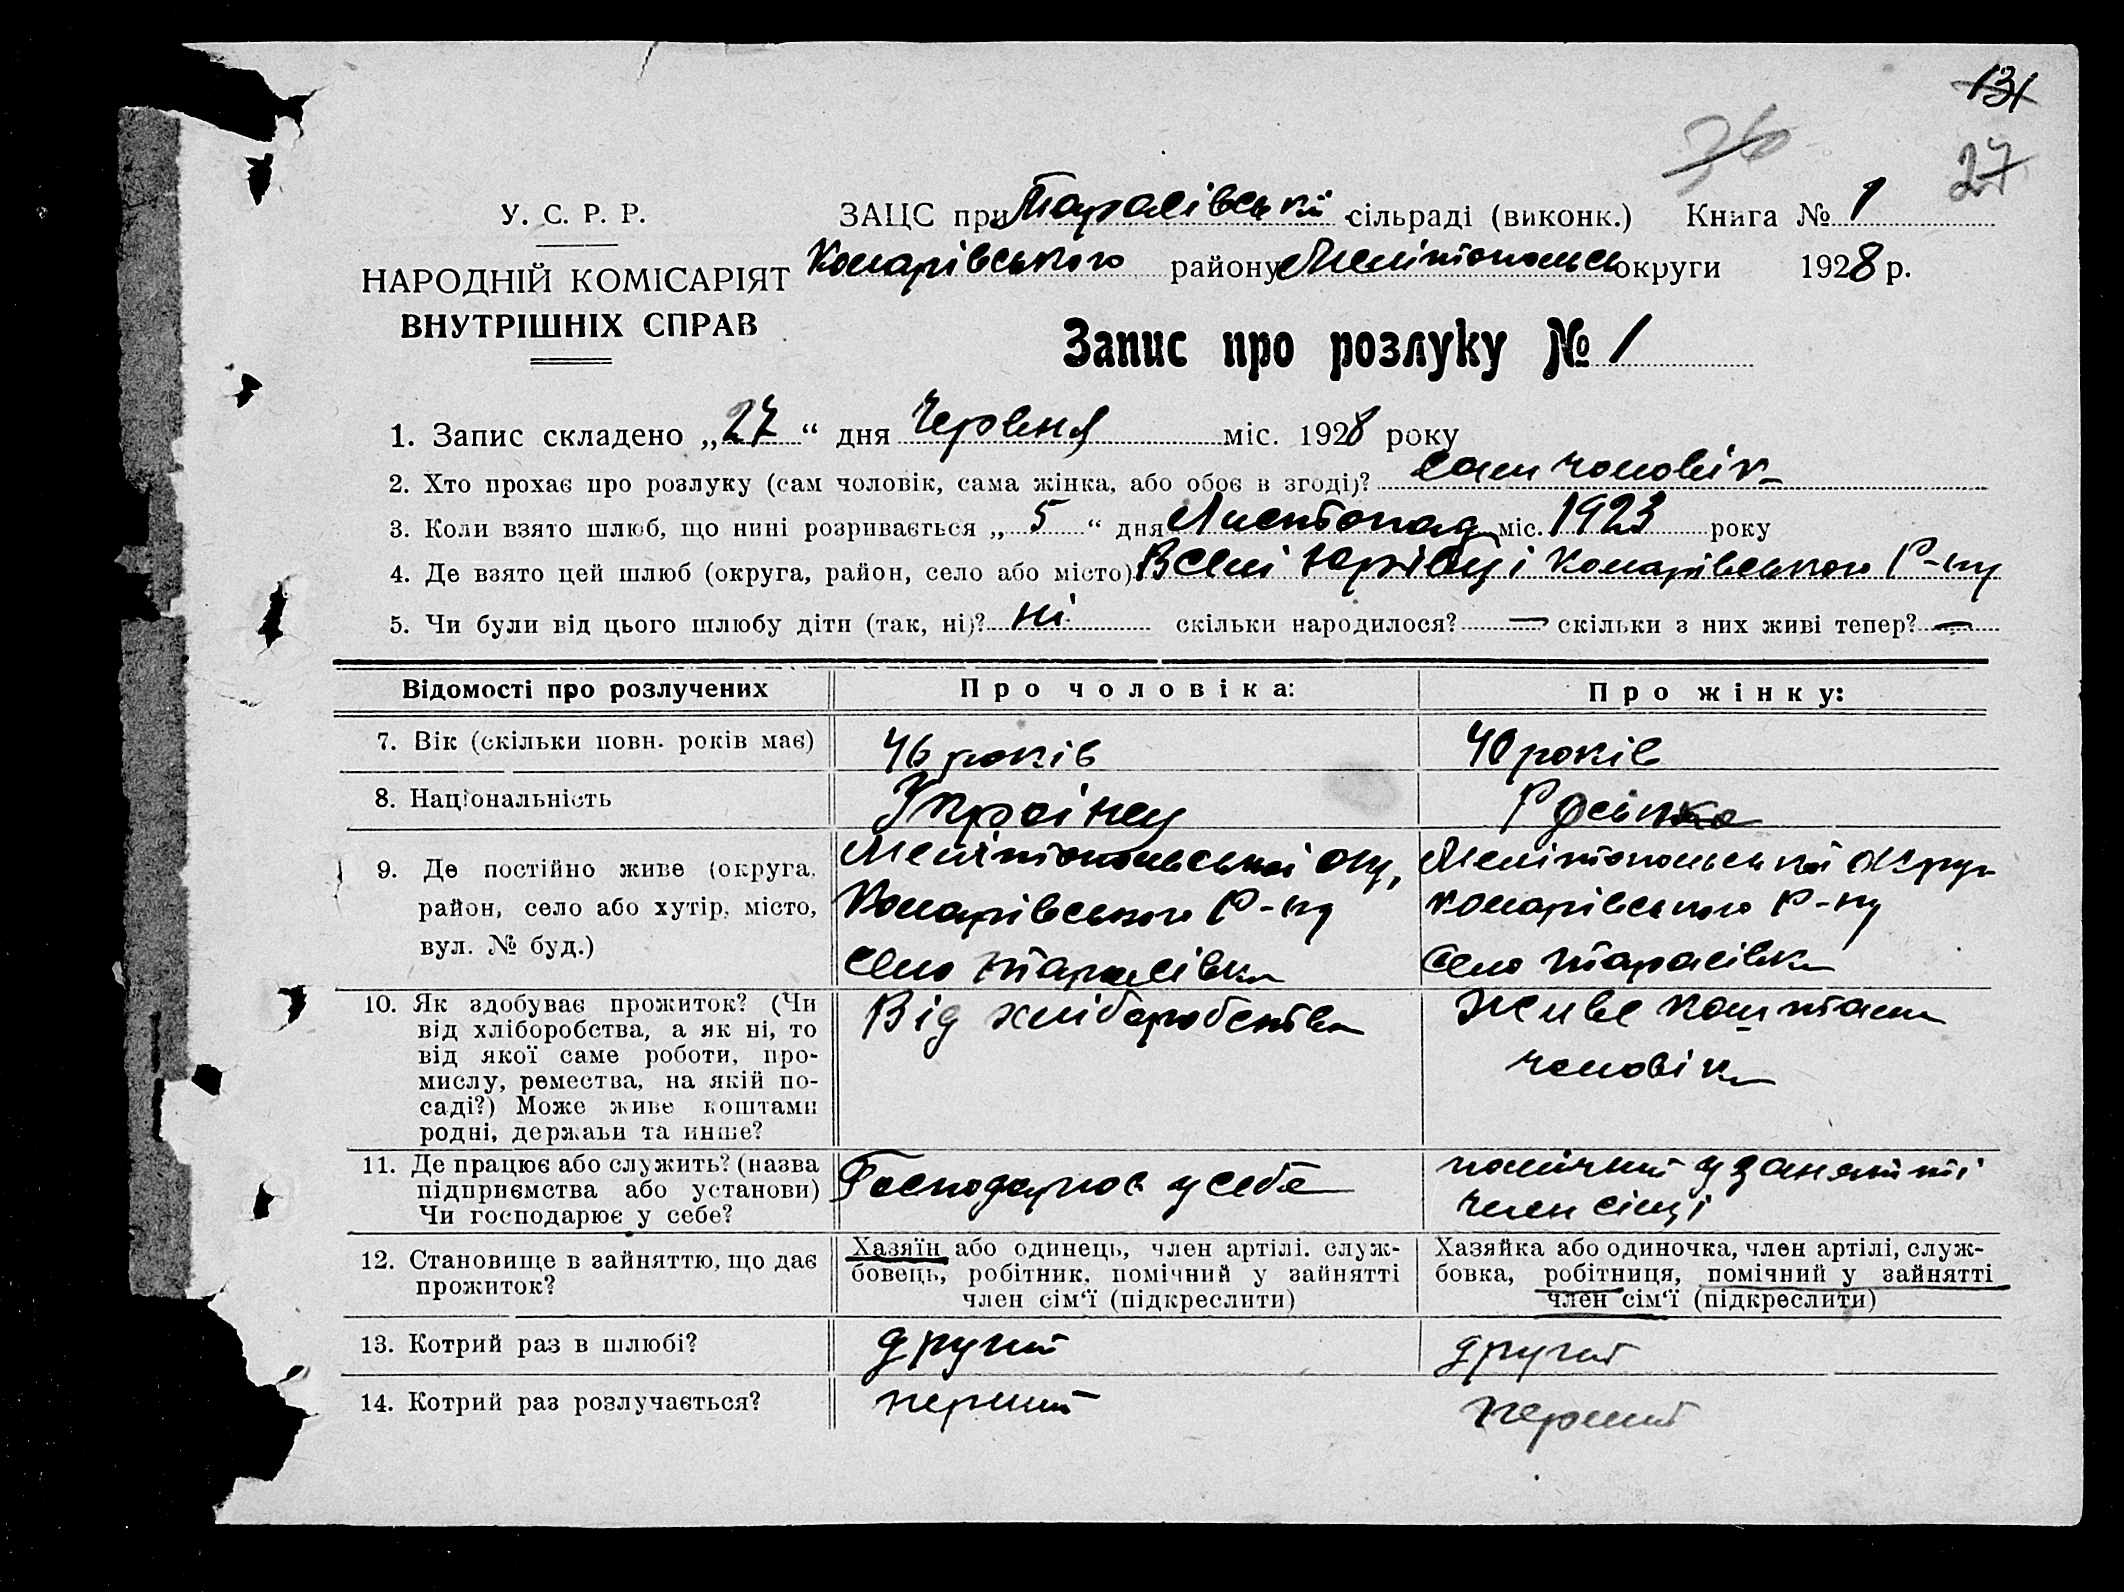 131
36
27
У. С. Р. Р.
НАРОДНІЙ КОМІСАРІЯТ
ВНУТРІШНІХ СПРАВ
ЗАЦС при Тарасівській сільраді (виконк.) Книга № 1
Комарівського району Мелітопольсь округи 1928 р.
Запис про розлуку № 1
1. Запис складено „27“ дня Червня міс. 1928 року
2. Хто прохає про розлуку (сам чоловік, сама жінка, або обоє в згоді)? сам чоловік
3. Коли взято шлюб, що нині розривається „5“ дня Листопад міс. 1923 року
4. Де взято цей шлюб (округа, район, село або місто) В селі Юрівці Комарівського Р-ну
5. Чи були від цього шлюбу діти (так, ні)? ні скільки народилося? — скільки з них живі тепер? —
Відомості про розлучених Про чоловіка: Про жінку:
7. Вік (скільки повн. років має) 46 років 40 років
8. Національність Українец
9. Де постійно живе (округа, район, село або хутір, місто, вул. № буд.)
Мелітопольської окр,
Комарівського Р-ну
село Тарасівка
Мелітопольській Округ
Комарівського Р-ну
село Тарасівка
10. Як здобуває прожиток? (Чи
від хліборобства, а як ні, то
від якої саме роботи, про-
мислу, ремества, на якій по-
саді?) Може живе коштами
родні, держави та инше?
Від хліборобства
Живе коштами
чоловіка
11. Де працює або служить? (назва
підприємства або установи)
Чи господарює у себе?
Господарює у себе
помічний у занятті
член сімці
12. Становище в зайняттю, що дає
прожиток?
Хазяїн або одинець, член артілі, служ-
бовець, робітник, помічний у зайнятті
член сім‘ї (підкреслити)
Хазяйка або одиночка, член артілі, служ-
бовка, робітниця, помічний у зайнятті
член сім‘ї (підкреслити)
13. Котрий раз в шлюбі? другий другий
14. Котрий раз розлучається? перший перший